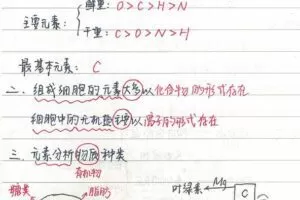 主要元素:
鲜重:O>C>H>N
干重:C>O>N>H
最基本元素: C
二、组成细胞的元素大多以化合物的形式存在
细胞中的无机盐大多以离子的形式存在
三、元素分析物质种类
有机物
糖类
脂肪
叶绿素
Mg
C